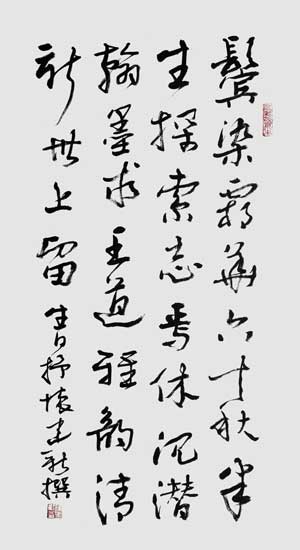 鬓染霜華六十秋半
生探索志焉休沉潜
翰墨求王道雅韵清
新世上留 生日抒懷建新撰